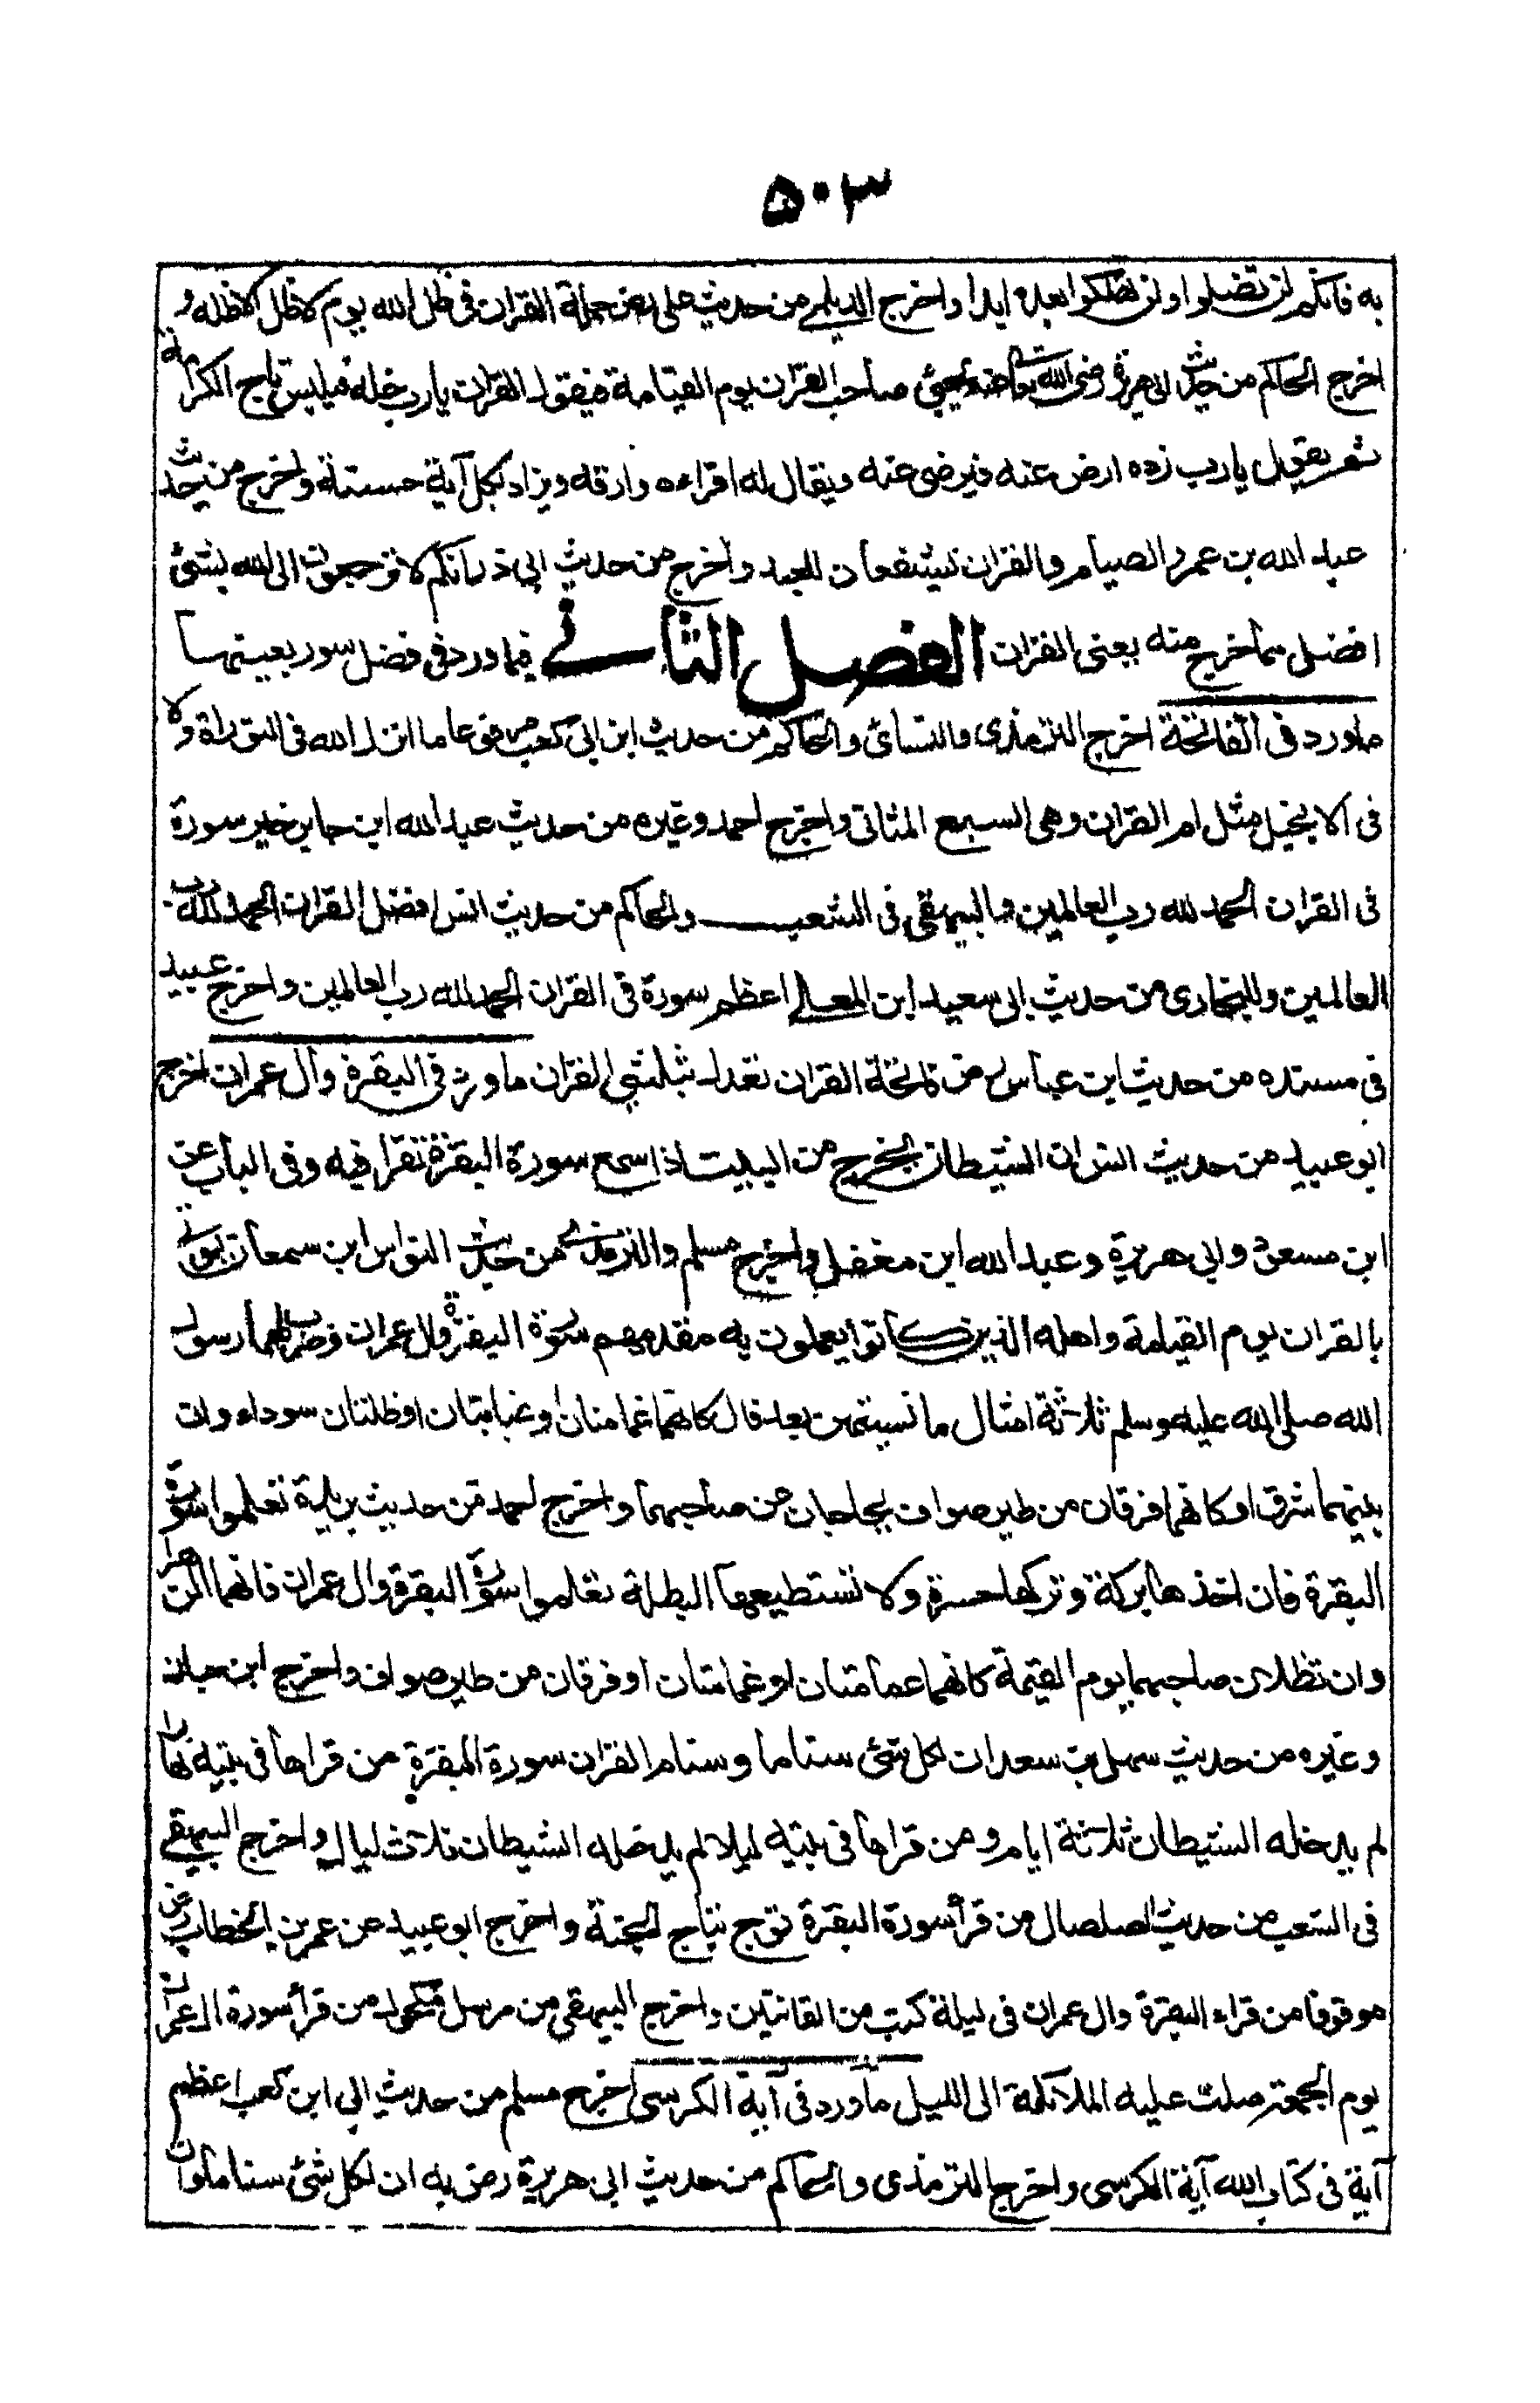 ٥٠٣
به فانكم لن تضلوا ولن تهلكوا بعده ابدا واخرج الديلمي من حديث علي رض حملة القران في ظل الله يوم لا ظل الا ظله و
اخرج الحاكم من حديث ابي هريرة رضي الله تعالى عنه يجيئ صاحب القران يوم القيامة فيقول القران يا رب حله فيلبس تاج الكرامة
ثم يقول يا رب زده ارض عنه فيرضى عنه ويقال له اقراءه وارقه ويزاد لكل آية حسنة واخرج من حديث
عبد الله بن عمرو الصيام والقران يشفعان للعبد واخرج من حديث ابي ذر انكم لا ترجعون الى الله بشئ
افضل مما خرج منه يعنى القران الفصل الثاني فيما ورد في فضل سور بعينها
ما ورد في الفاتحة اخرج الترمذى والنسائ والحاكم من حديث ابن ابي كعب مرفوعا ما انزل الله في التوراة ولا
في الانجيل مثل ام القران وهى السبع المثانى واخرج احمد وغيره من حديث عبد الله ابن جابر خير سورة
في القران الحمد لله رب العالمين والبيهقى في الشعب والحاكم من حديث انس افضل القران الحمد لله رب
العالمين وللبخارى من حديث ابى سعيد ابن المعلى اعظم سورة في القران الحمد لله رب العالمين واخرج عبيد
في مسنده من حديث ابن عباس رض فاتحة القران تعدل بثلثي القران ما ورد في البقرة وآل عمران اخرج
ابو عبيد من حديث انس ان الشيطان يخرج من البيت اذا سمع سورة البقرة تقرا فيه وفى الباب عن
ابن مسعود وابى هريرة وعبد الله ابن مغفل واخرج مسلم والترمذي من حديث النواس ابن سمعان يوتى
بالقران يوم القيامة واهله الذين كانوا يعملون به مقدمهم سورة البقرة وال عمران وضرب لهما رسول
الله صلى الله عليه وسلم ثلاثة امثال ما نسيتهن بعد قال كانهما غمامتان او غيايتان او ظلتان سوداء وان
بينهما شرق او كانهما فرقان من طير صواف يحاجان عن صاحبهما واخرج احمد من حديث بريدة تعلموا سورة
البقرة فان اخذها بركة وتركها حسرة ولا تستطيعها البطلة تعلموا سورة البقرة وال عمران فانهما الزهراوان
وان تظلان صاحبهما يوم القيمة كانهما غمامتان او غيايتان او فرقان من طير صواف واخرج ابن حبان
وغيره من حديث سهل بن سعد ان لكل شئ سناما وسنام القران سورة البقرة من قراها في بيته نهارا
لم يدخله الشيطان ثلاثة ايام ومن قراها في بيته ليلا لم يدخله الشيطان ثلاث ليال واخرج البيهقي
في الشعب من حديث الصلصال من قرأ سورة البقرة توج بتاج الجنة واخرج ابو عبيد عن عمر بن الخطاب رض
موقوفا من قراء البقرة وال عمران في ليلة كتب من القانتين واخرج البيهقى من مرسل مكحول من قرأ سورة ال عمران
يوم الجمعة صلت عليه الملائكة الى الليل ما ورد في آية الكرسى اخرج مسلم من حديث ابي ابن كعب اعظم
آية في كتاب الله آية الكرسى واخرج الترمذى والحاكم من حديث ابى هريرة رض به ان لكل شئ سناما وان